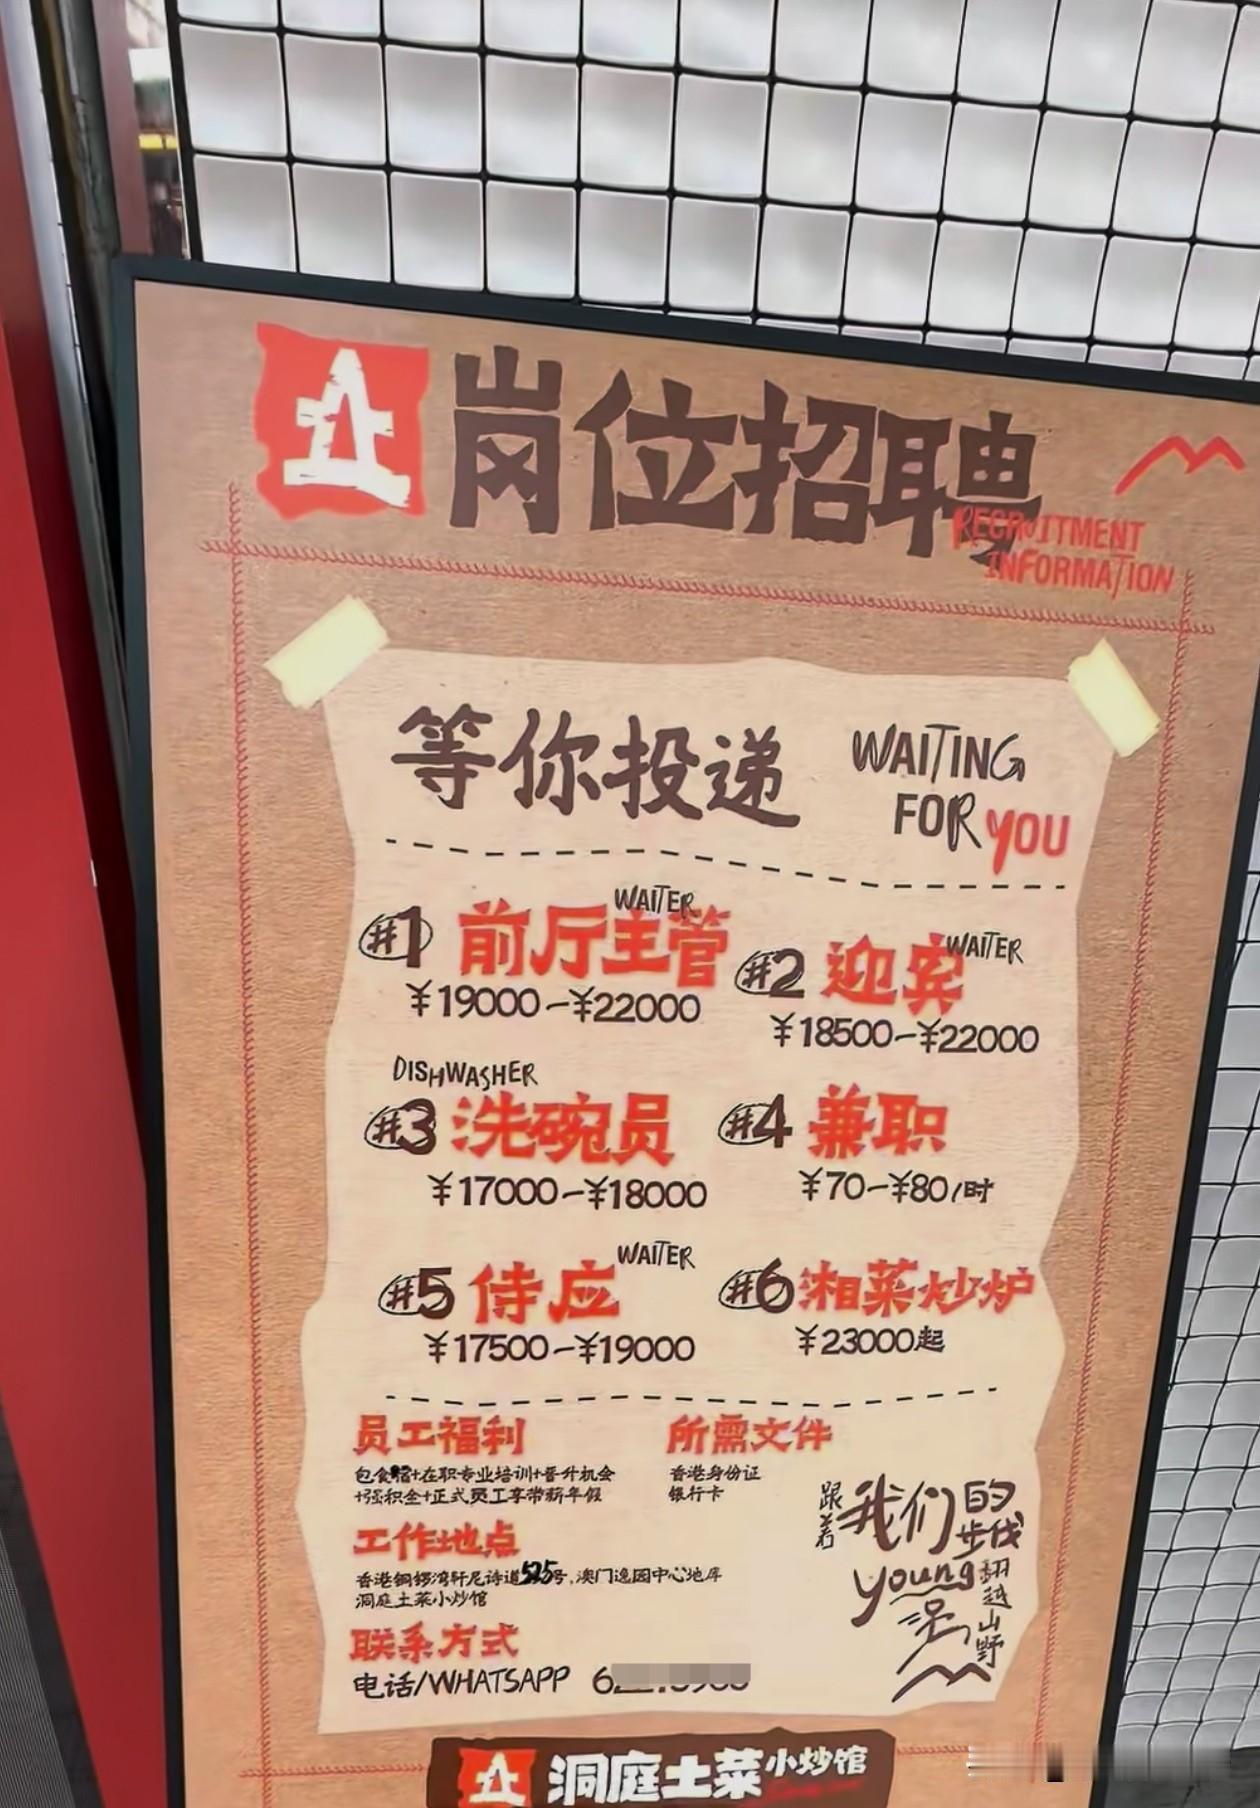 岗位招聘
RECRUITMENT
INFORMATION
等你投递
WAITING
FOR YOU
WAITER
#1 前厅主管
￥19000-￥22000
WAITER
#2 迎宾
￥18500-￥22000
DISHWASHER
#3 洗碗员
￥17000-￥18000
#4 兼职
￥70-￥80/时
WAITER
#5 侍应
￥17500-￥19000
#6 湘菜炒炉
￥23000起
员工福利
包食宿+在职专业培训+晋升机会
+强积金+正式员工享带薪年假
所需文件
香港身份证
银行卡
工作地点
香港铜锣湾轩尼诗道525号,澳门逸园中心地库
洞庭土菜小炒馆
联系方式
电话/WHATSAPP 6
跟着我们的步伐
young
翻越山野
洞庭土菜小炒馆